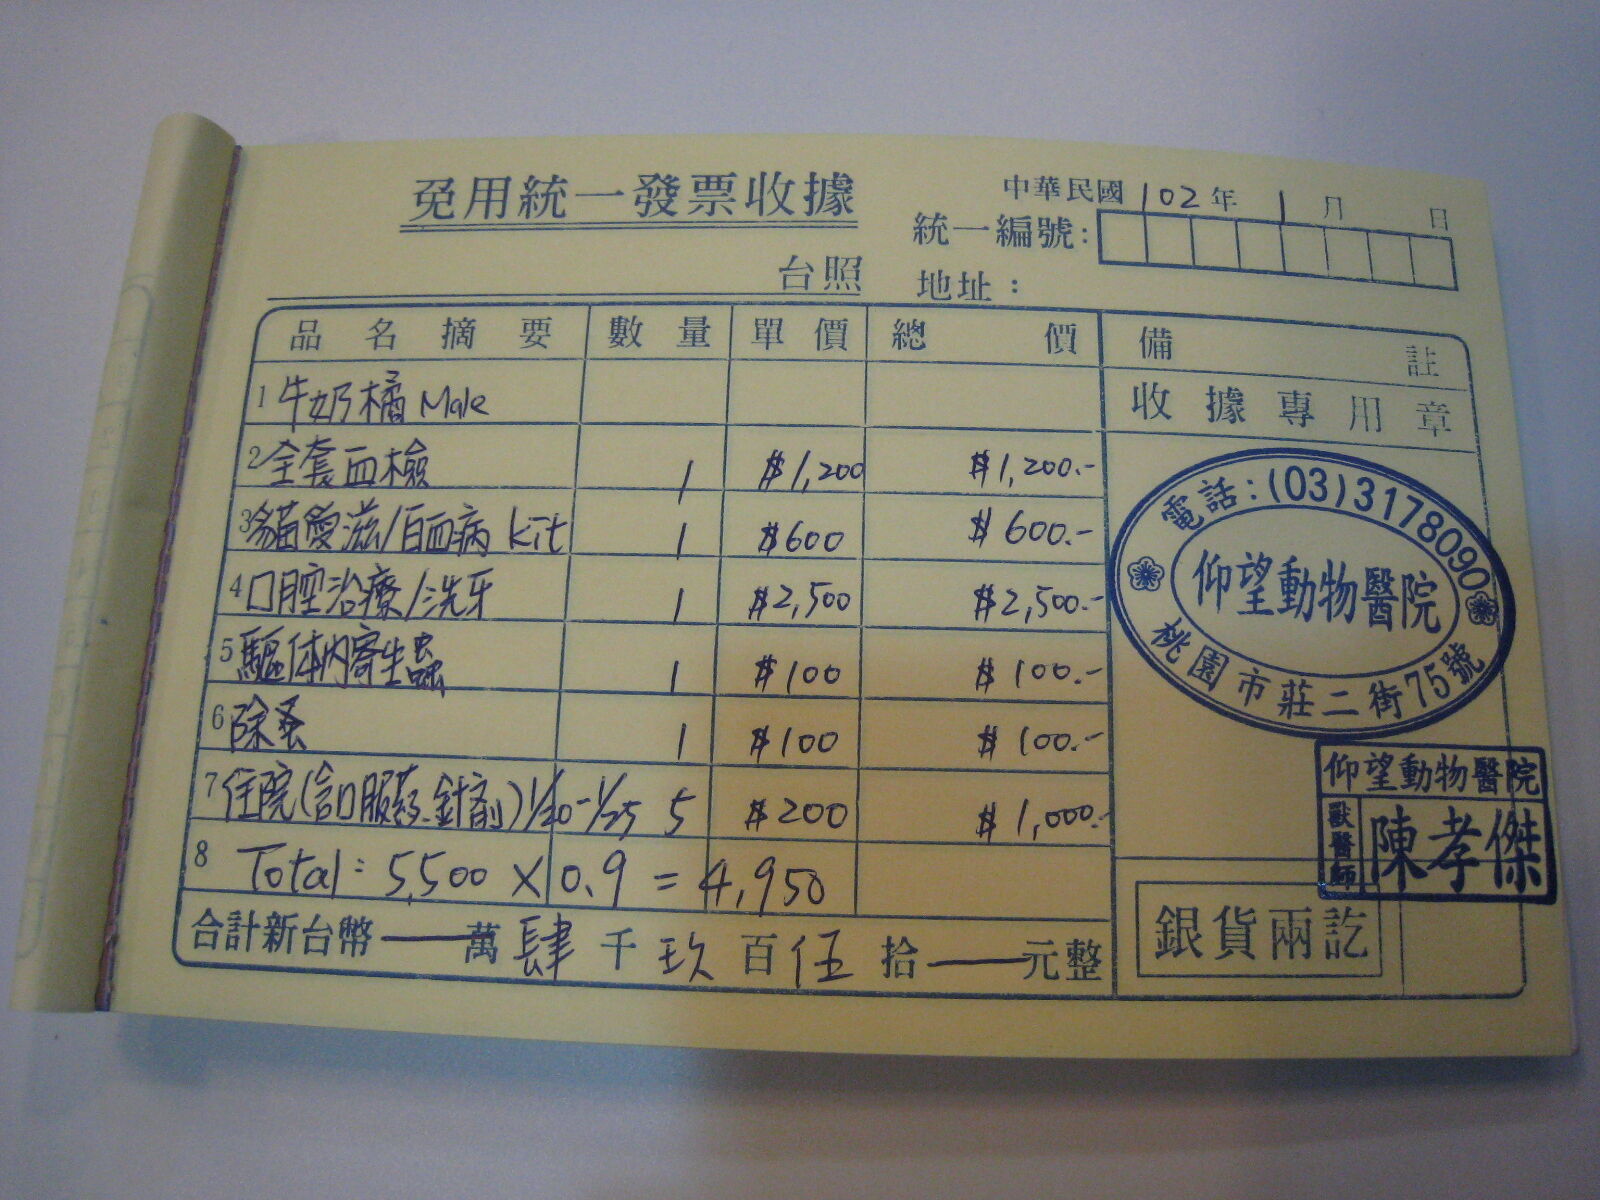 免用統一發票收據
中華民國102年1月 日
統一編號:
台照
地址:
品名摘要 數量 單價 總價 備註
收據專用章
1 牛奶橘 Male
2 全套血檢 1 $1,200 $1,200.-
3 貓愛滋/白血病 kit 1 $600 $600.-
4 口腔治療/洗牙 1 $2,500 $2,500.-
5 驅体內寄生蟲 1 $100 $100.-
6 除蚤 1 $100 $100.-
7 住院(含口服药、針劑)1/20-1/25 5 $200 $1,000.-
8 Total: 5,500 X 0.9 = 4,950
合計新台幣 — 萬 肆 千 玖 百 伍 拾 — 元整
電話:(03)3178090
仰望動物醫院
桃園市莊二街75號
仰望動物醫院
獸醫師 陳孝傑
銀貨兩訖